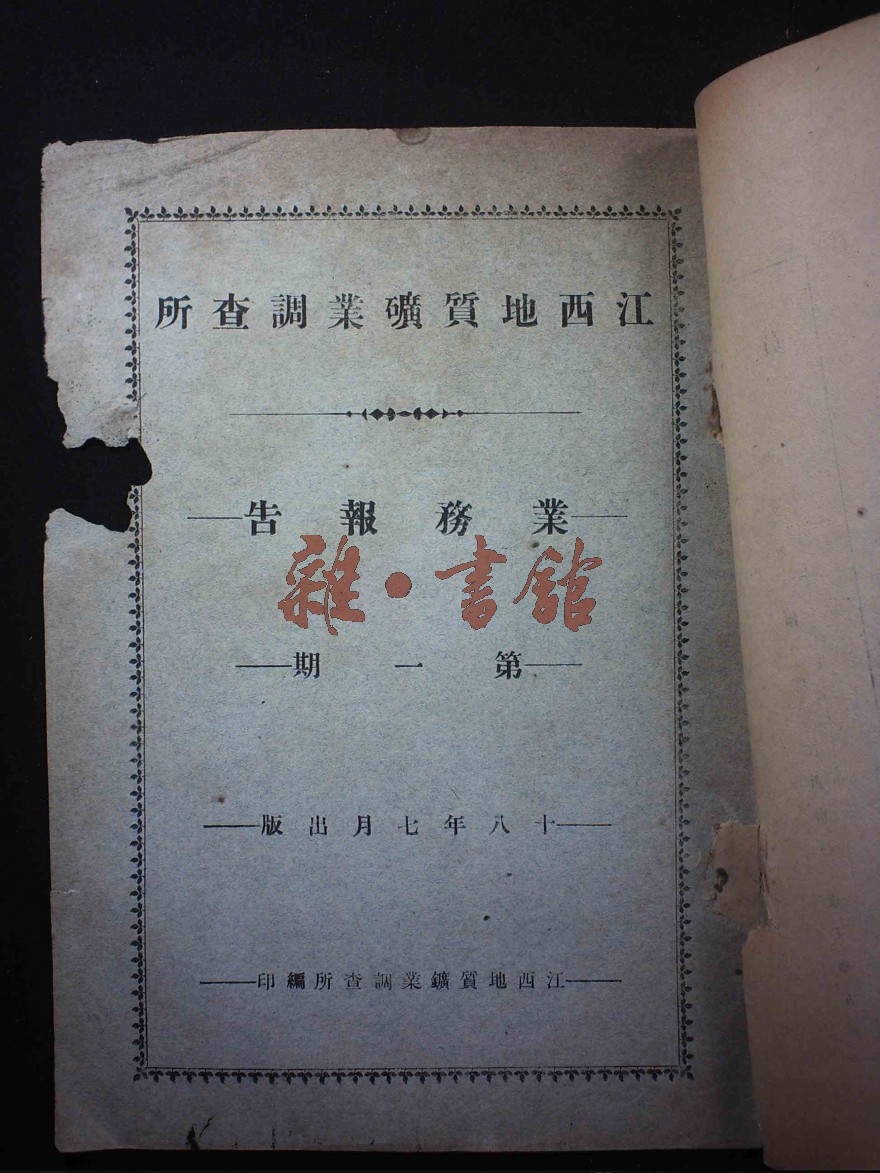 江西地質礦業調查所
業務報告
雜·書館
第一期
十八年七月出版
江西地質鑛業調查所編印